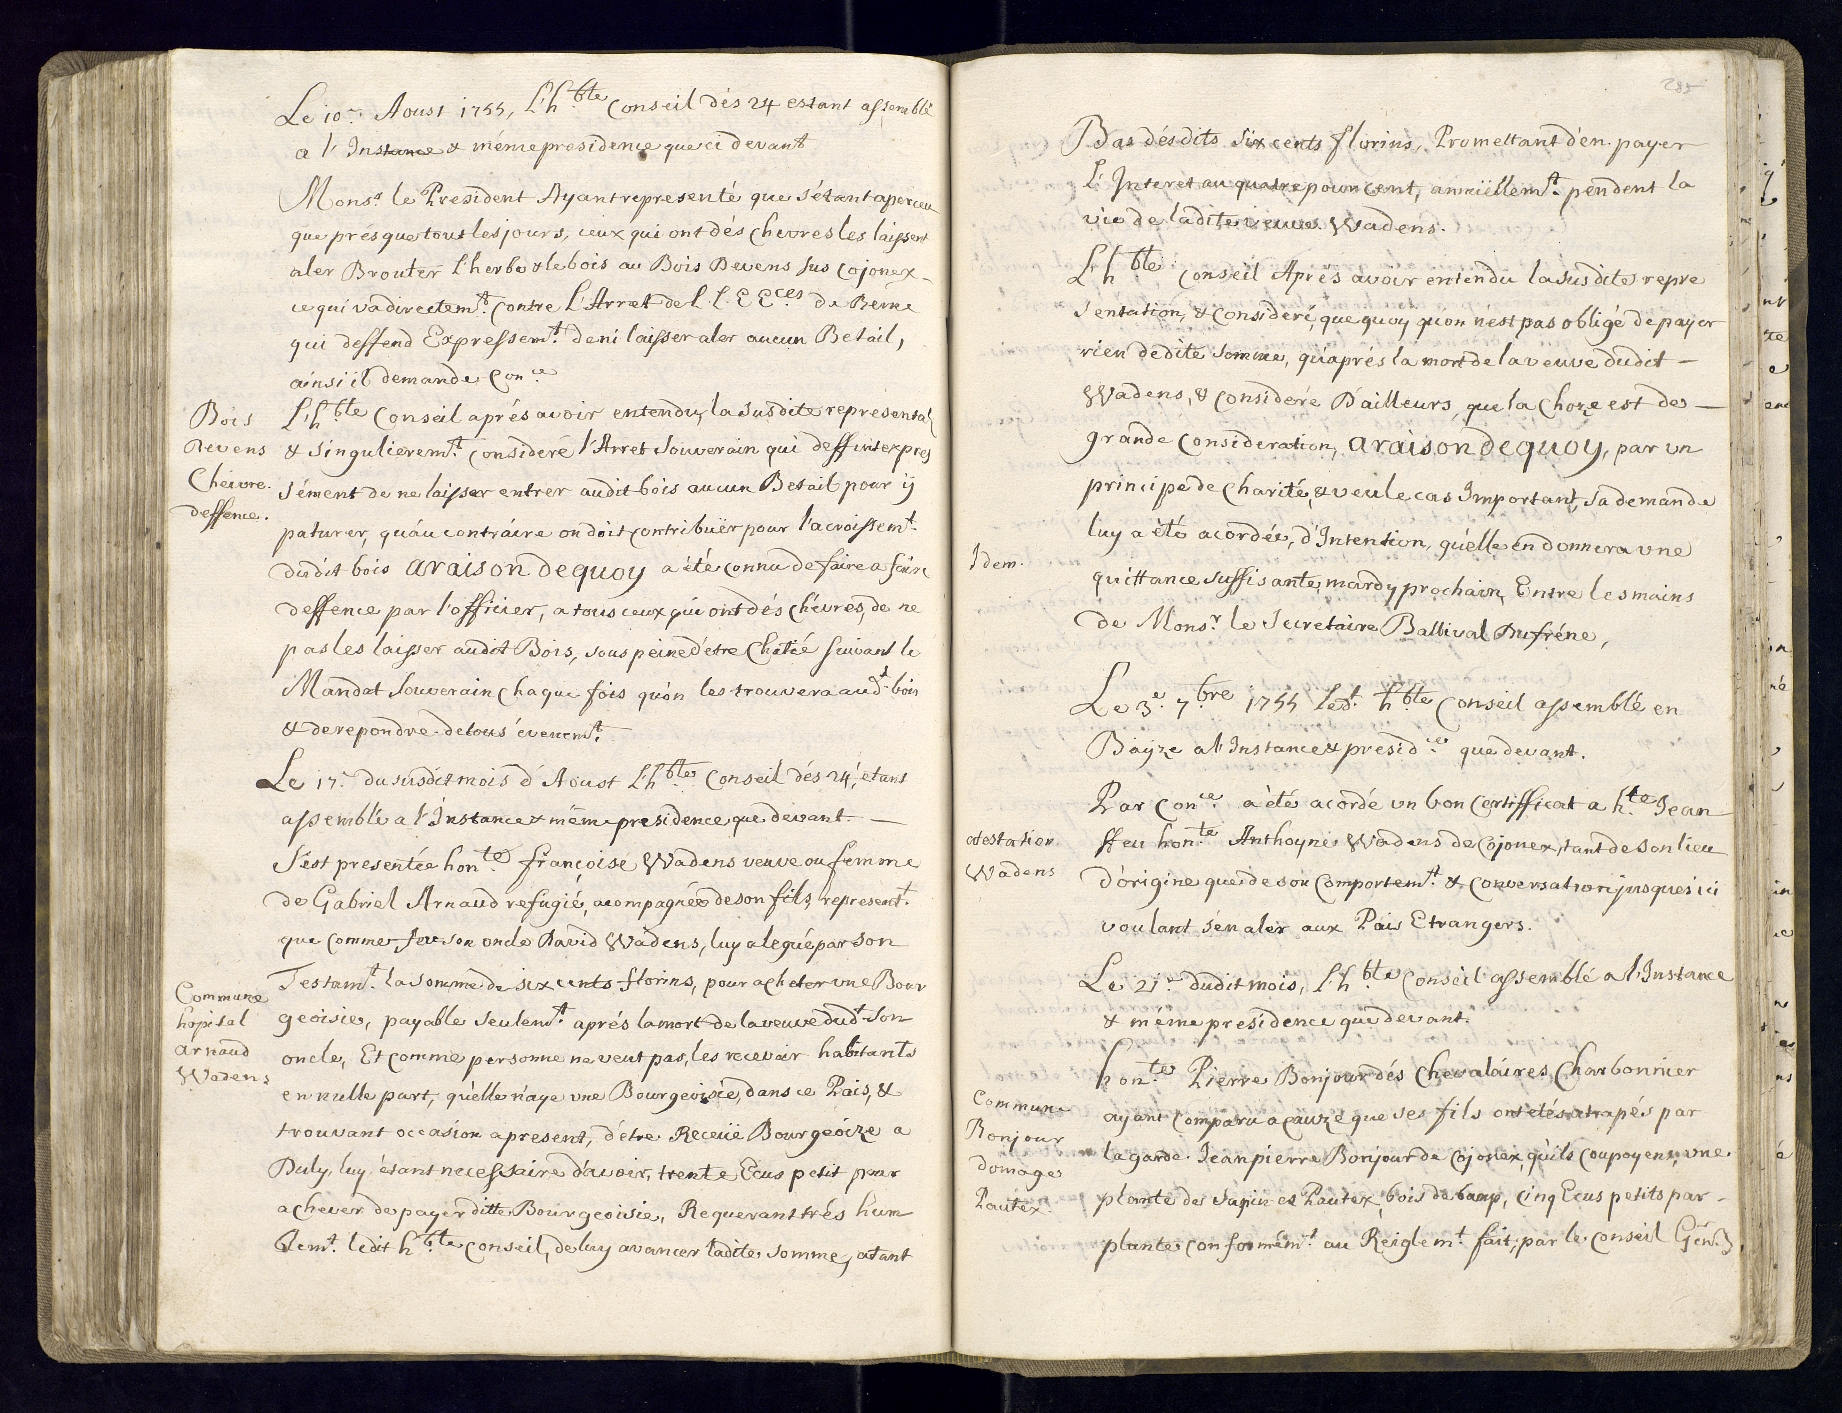 Le 10.e Aoust 1755, L'h.ble Conseil dés 24 estant assemblé
a l'Instance & méme presidence que ci devant
Mons.r le President Ayant representé que s'étant aperceu
que présque tout les jours, ceux qui ont dés Chevres les laissent
aler Brouter l'herbe & le bois au Bois Devens sus Cojonex
ce qui va directem.t contre l'Arret de L.L. E E.ces de Berne
qui deffend Expressem.t de ni laisser aler aucun Betail,
ainsi il demande Con.ce
Bois
Devens
Cheivre.
deffence.
L'h.ble Conseil aprés avoir entendu, la susdite represental
& singulierem.t consideré l'Arret Souverain qui deffint expres
sément de ne laisser entrer audit bois aucun Betail pour ij
paturer, qu'au contraire on doit contribuër pour l'acroissem.t
dudit bois araison dequoy a été connu de faire a faire
deffence par l'officier, a tous ceux qui ont dés chévres, de ne
pas les laisser audit Bois, sous peine d'étre Chatié suivant le
Mandat Souverain chaque fois qu'on les trouvera aud.t bois
& de repondre de tous évenem.t
Le 17.e du susdit mois d'Aoust l'h.ble Conseil dés 24, étant
assemblé a l'Instance & méme presidence que devant.
S'est presentée hon.te françoise Wadens veuve ou femme
de Gabriel Arnaud refugié, acompagnée de son fils, represent.t
que comme feu son oncle David Wadens, luy a legué par son
Commune
hopital
arnaud
Wadens
Testam.t la somme de six cents florins, pour acheter une Bour
geoisie, payable seulem.t aprés la mort de la veuve dud.t son
oncle, Et comme personne ne veut pas, les recevoir habitants
en nulle part, qu'elle n'aye une Bourgeoisie, dans ce Pais, &
trouvant occasion apresent, d'étre Receüe Bourgeoize a
Duly, luy étant necessaire d'avoir, trente Ecus petit pour
achever de payer ditte Bourgeoisie, Requerant trés hum
blem.t ledit h.ble Conseil, de luy avancer ladite somme, atant
285
Bas désdits six cents florins, Promettant d'én payer
l'Interet au quatre pour cent, annüellem.t pendent la
vie de ladite veuve Wadens.
L'h.ble Conseil Aprés avoir entendu la susdite repre
sentation, & consideré, que quoy qu'on n'est pas obligé de payer
rien de dite somme, qu'aprés la mort de la veuve dudit
Wadens, & consideré D'ailleurs, que la Choze est de
grande consideration, araison dequoy, par un
principe de Charité, & veu le cas Important, sa demande
Idem.
luy a été acordée, d'Intention, qu'elle en donnera une
quittance suffisante, mardy prochain, Entre les mains
de Mons.r le Secretaire Ballival Dufréne,
Le 3.e 7.bre 1755 led.t h.ble Conseil assemblé en
Bayze a l'Instance & presid.ce que devant.
atestation
Wadens
Par Con.ce a été acordé un bon Certifficat a h.te Jean
ffeu hon.te Anthoyne Wadens de Cojonex, tant de son lieu
d'origine que de son Comportem.t & Conversation jusques ici
voulant s'én aler aux Pais Etrangers.
Le 21.e dudit mois, l'h.ble Conseil assemblé a l'Instance
& méme presidence que devant.
Commune
Bonjour
domage
Pautex
hon.te Pierre Bonjour dés Chevaláires Charbonnier
ayant comparu a cauze que ses fils ont étés atrapés par
la garde Jeanpierre Bonjour de Cojonex, qu'ils coupoyent, une
plante de sapin es Pautex, bois de bamp, cinq Ecus petits par
plante conformém.t au Reiglem.t fait, par le Conseil Gén.l